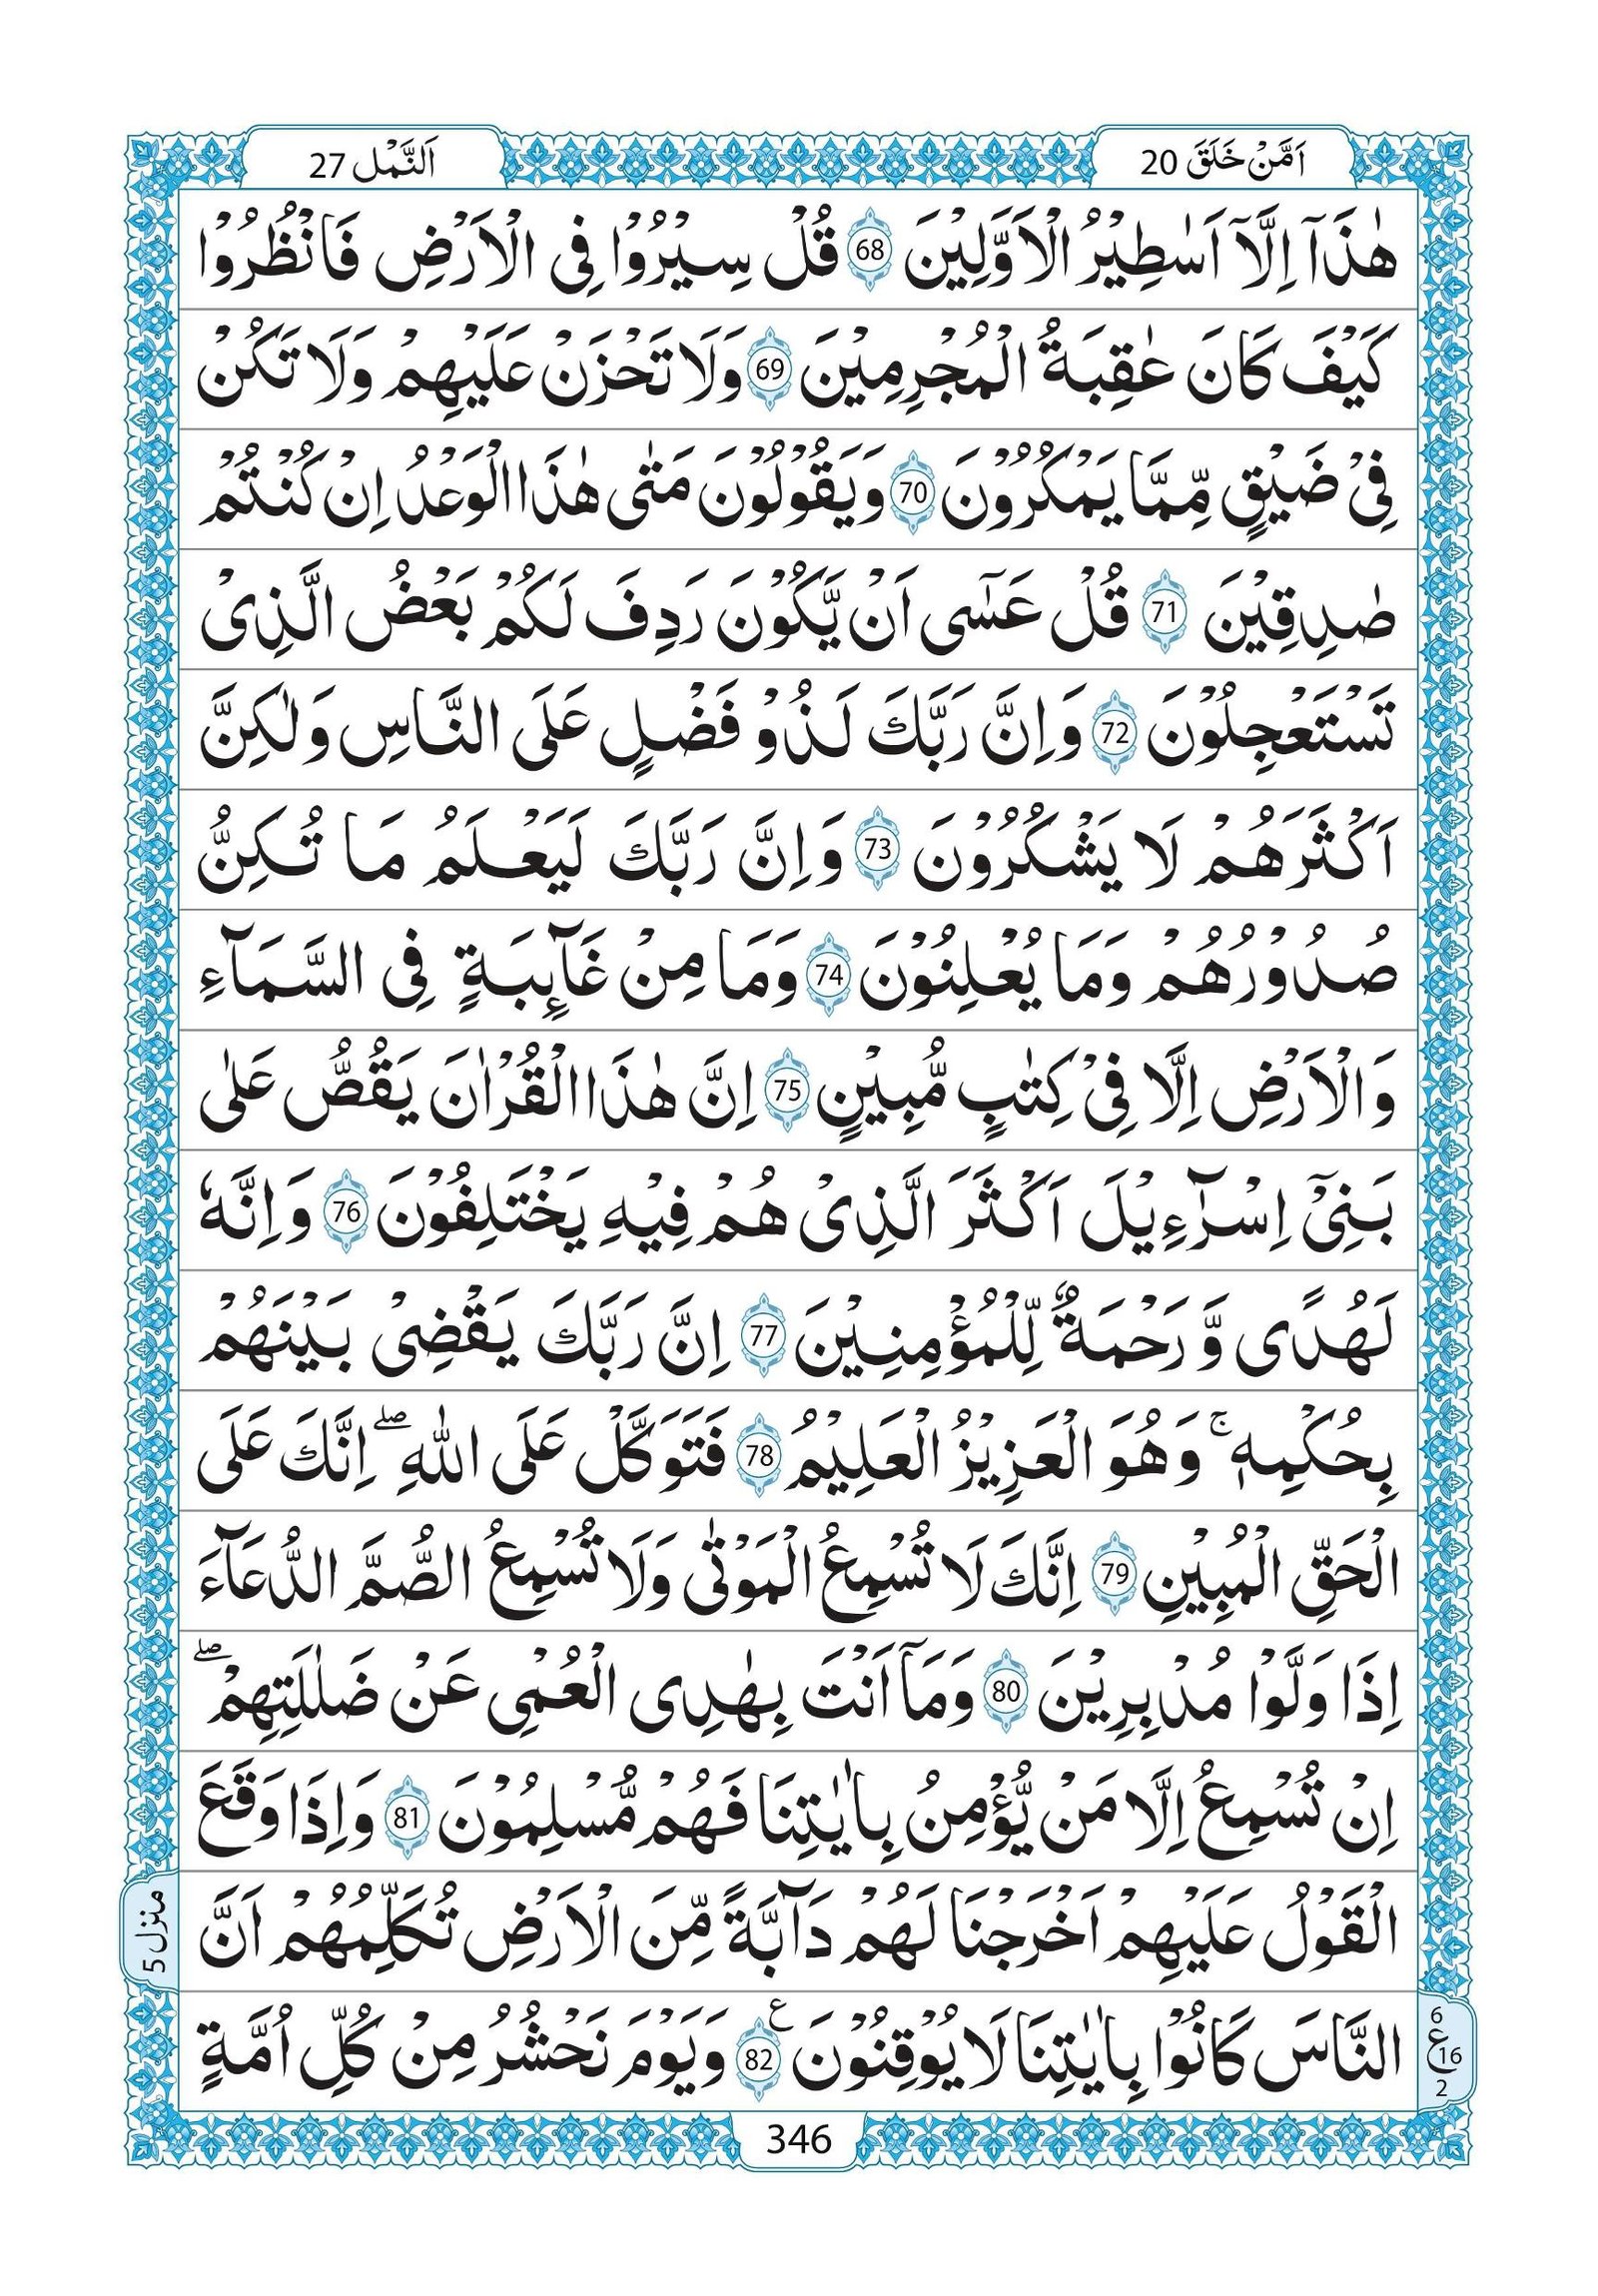 اَمَّنْ خَلَقَ 20
اَلنَّمْل 27
هٰذَاۤ اِلَّاۤ اَسٰطِيْرُ الْاَوَّلِيْنَ 68 قُلْ سِيْرُوْا فِى الْاَرْضِ فَانْظُرُوْا
كَيْفَ كَانَ عٰقِبَةُ الْمُجْرِمِيْنَ 69 وَلَا تَحْزَنْ عَلَيْهِمْ وَلَا تَكُنْ
فِىْ ضَيْقٍ مِّمَّا يَمْكُرُوْنَ 70 وَيَقُوْلُوْنَ مَتٰى هٰذَا الْوَعْدُ اِنْ كُنْتُمْ
صٰدِقِيْنَ 71 قُلْ عَسٰٓى اَنْ يَّكُوْنَ رَدِفَ لَكُمْ بَعْضُ الَّذِىْ
تَسْتَعْجِلُوْنَ 72 وَاِنَّ رَبَّكَ لَذُوْ فَضْلٍ عَلَى النَّاسِ وَلٰكِنَّ
اَكْثَرَهُمْ لَا يَشْكُرُوْنَ 73 وَاِنَّ رَبَّكَ لَيَعْلَمُ مَا تُكِنُّ
صُدُوْرُهُمْ وَمَا يُعْلِنُوْنَ 74 وَمَا مِنْ غَآئِبَةٍ فِى السَّمَآءِ
وَالْاَرْضِ اِلَّا فِىْ كِتٰبٍ مُّبِيْنٍ 75 اِنَّ هٰذَا الْقُرْاٰنَ يَقُصُّ عَلٰى
بَنِىْۤ اِسْرَآءِيْلَ اَكْثَرَ الَّذِىْ هُمْ فِيْهِ يَخْتَلِفُوْنَ 76 وَاِنَّهٗ
لَهُدًى وَّرَحْمَةٌ لِّلْمُؤْمِنِيْنَ 77 اِنَّ رَبَّكَ يَقْضِىْ بَيْنَهُمْ
بِحُكْمِهٖ ۚ وَهُوَ الْعَزِيْزُ الْعَلِيْمُ 78 فَتَوَكَّلْ عَلَى اللّٰهِ ۖ اِنَّكَ عَلَى
الْحَقِّ الْمُبِيْنِ 79 اِنَّكَ لَا تُسْمِعُ الْمَوْتٰى وَلَا تُسْمِعُ الصُّمَّ الدُّعَآءَ
اِذَا وَلَّوْا مُدْبِرِيْنَ 80 وَمَاۤ اَنْتَ بِهٰدِى الْعُمْىِ عَنْ ضَلٰلَتِهِمْ ۖ
اِنْ تُسْمِعُ اِلَّا مَنْ يُّؤْمِنُ بِاٰيٰتِنَا فَهُمْ مُّسْلِمُوْنَ 81 وَاِذَا وَقَعَ
الْقَوْلُ عَلَيْهِمْ اَخْرَجْنَا لَهُمْ دَآبَّةً مِّنَ الْاَرْضِ تُكَلِّمُهُمْ اَنَّ
النَّاسَ كَانُوْا بِاٰيٰتِنَا لَا يُوْقِنُوْنَ ع 82 وَيَوْمَ نَحْشُرُ مِنْ كُلِّ اُمَّةٍ
منزل 5
6
ع 16
2
346